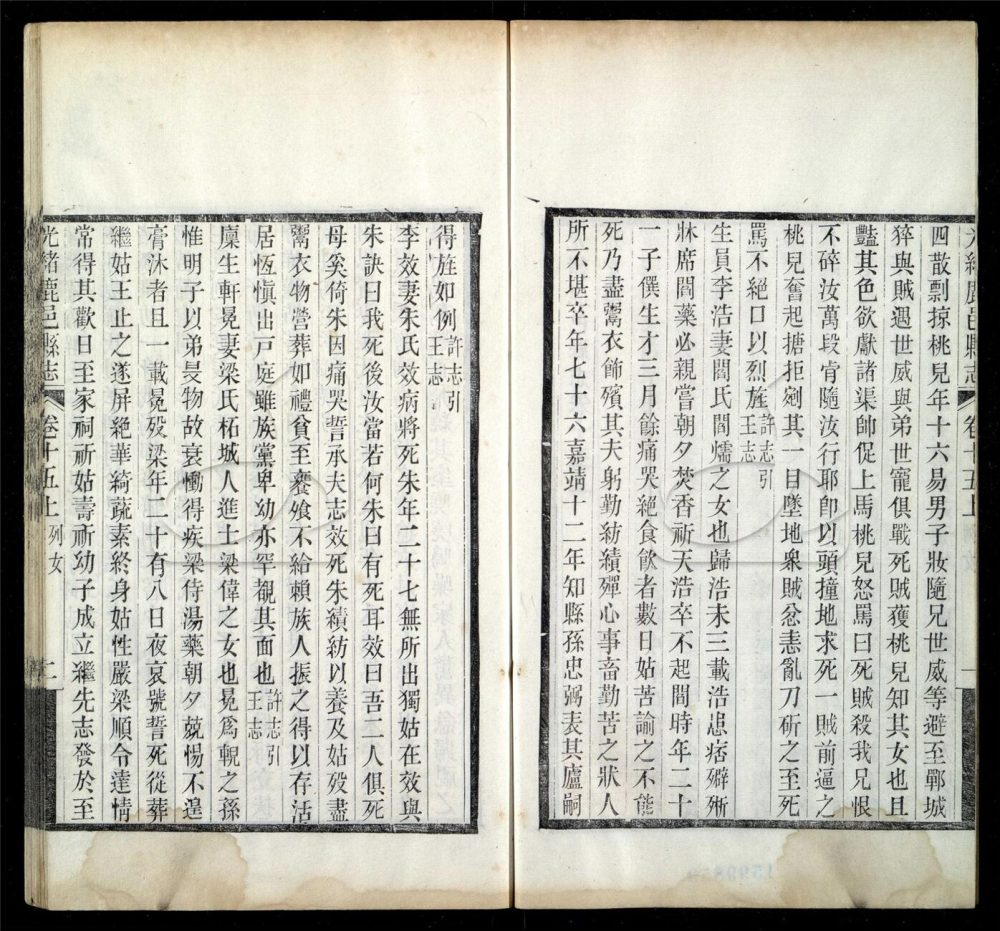 光緒鹿邑縣志 卷十五上 列女
四散剽掠桃兒年十六易男子妝隨兄世威等避至鄲城
猝與賊遇世威與弟世寵俱戰死賊獲桃兒知其女也且
豔其色欲獻諸渠帥促上馬桃兒怒罵曰死賊殺我兄恨
不碎汝萬段肯隨汝行耶卽以頭撞地求死一賊前逼之
桃兒奮起搪拒剜其一目墜地衆賊忿恚亂刀斫之至死
罵不絕口以烈旌許志引王志
生員李浩妻閻氏閻燸之女也歸浩未三載浩患痞癖漸
牀席閻藥必親嘗朝夕焚香祈天浩卒不起閻時年二十
一子僎生才三月餘痛哭絕食飮者數日姑苦諭之不能
死乃盡鬻衣飾殯其夫躬勤紡績殫心事畜勤苦之狀人
所不堪卒年七十六嘉靖十二年知縣孫忠弼表其廬嗣
得旌如例許志引王志
李效妻朱氏效病將死朱年二十七無所出獨姑在效與
朱訣曰我死後汝當若何朱曰有死耳效曰吾二人俱死
母奚倚朱因痛哭誓承夫志效死朱績紡以養及姑歿盡
鬻衣物營葬如禮貧至饔飧不給賴族人振之得以存活
居恆愼出戸庭雖族黨卑幼亦罕覯其面也許志引王志
廩生軒晃妻梁氏柘城人進士梁偉之女也晃爲輗之孫
惟明子以弟旻物故哀慟得疾梁侍湯藥朝夕兢惕不遑
膏沐者且一載晃歿梁年二十有八日夜哀號誓死從葬
繼姑王止之遂屏絕華綺蔬素終身姑性嚴梁順令達情
常得其歡日至家祠祈姑壽祈幼子成立繼先志發於至
光緒鹿邑縣志 卷十五上 列女 二